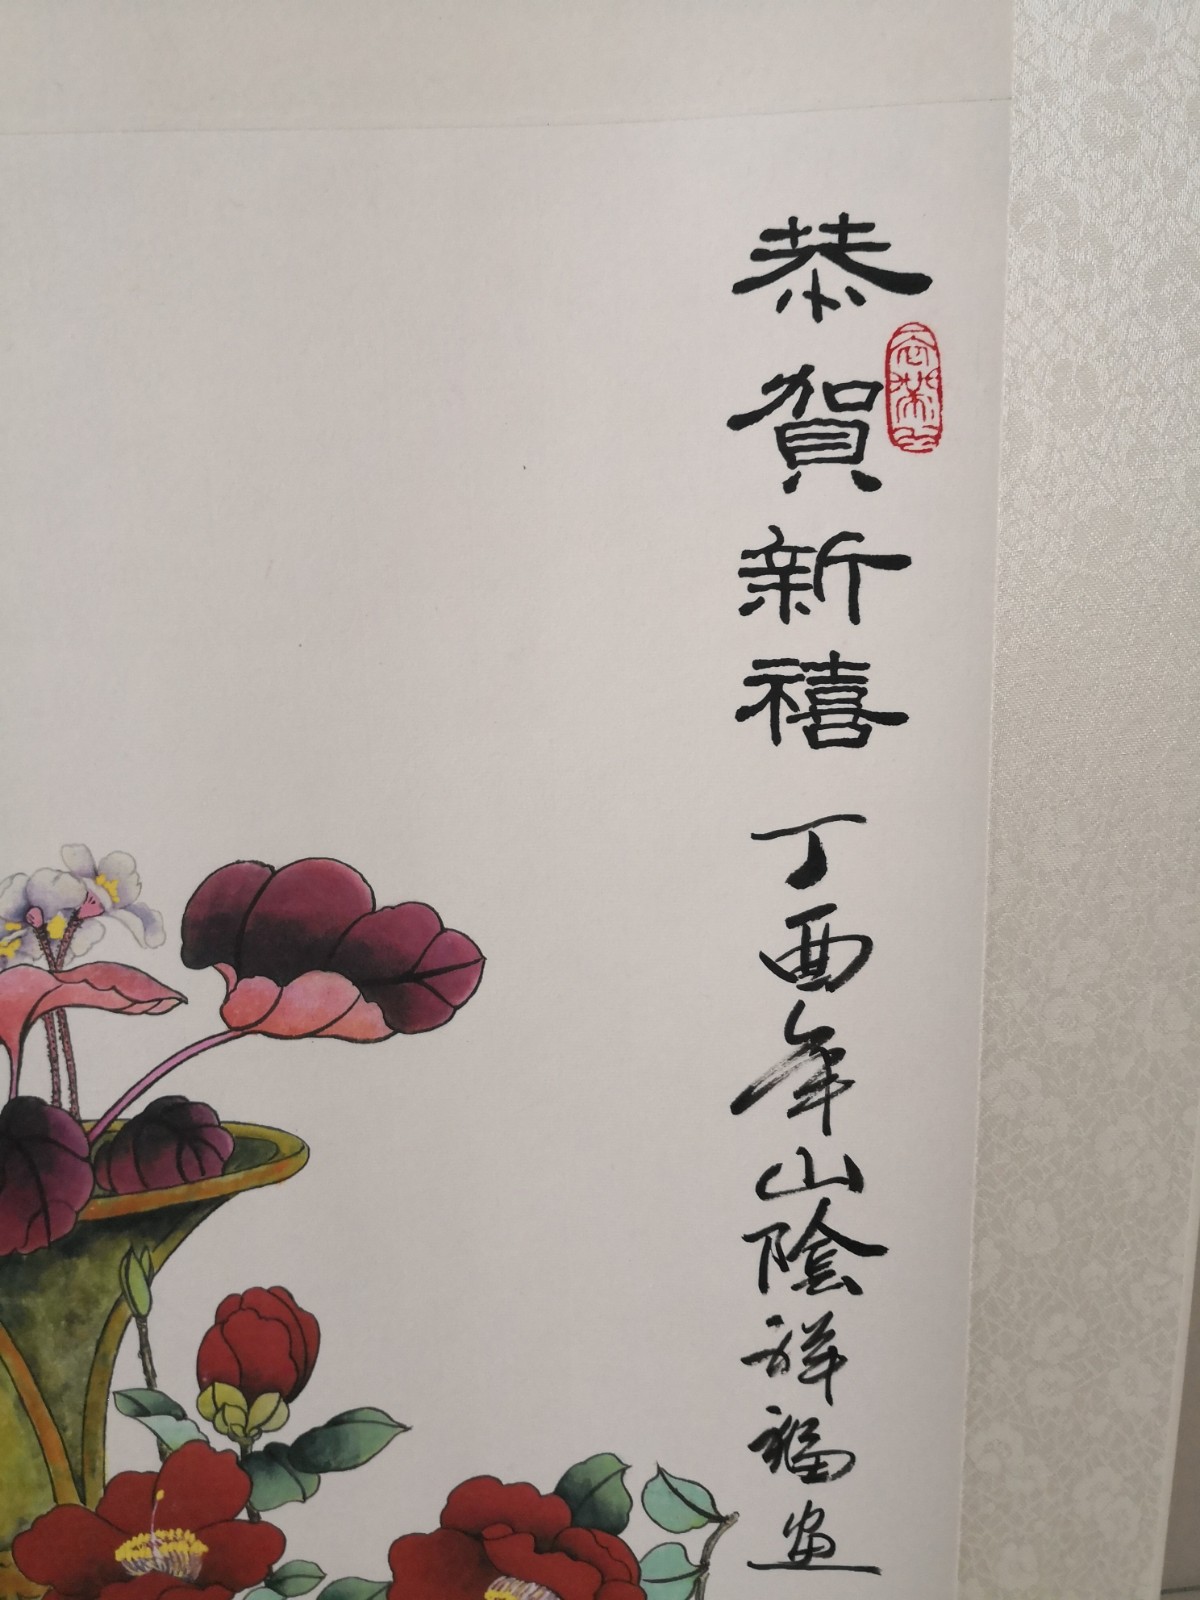 恭賀新禧丁酉年山陰祥福畫